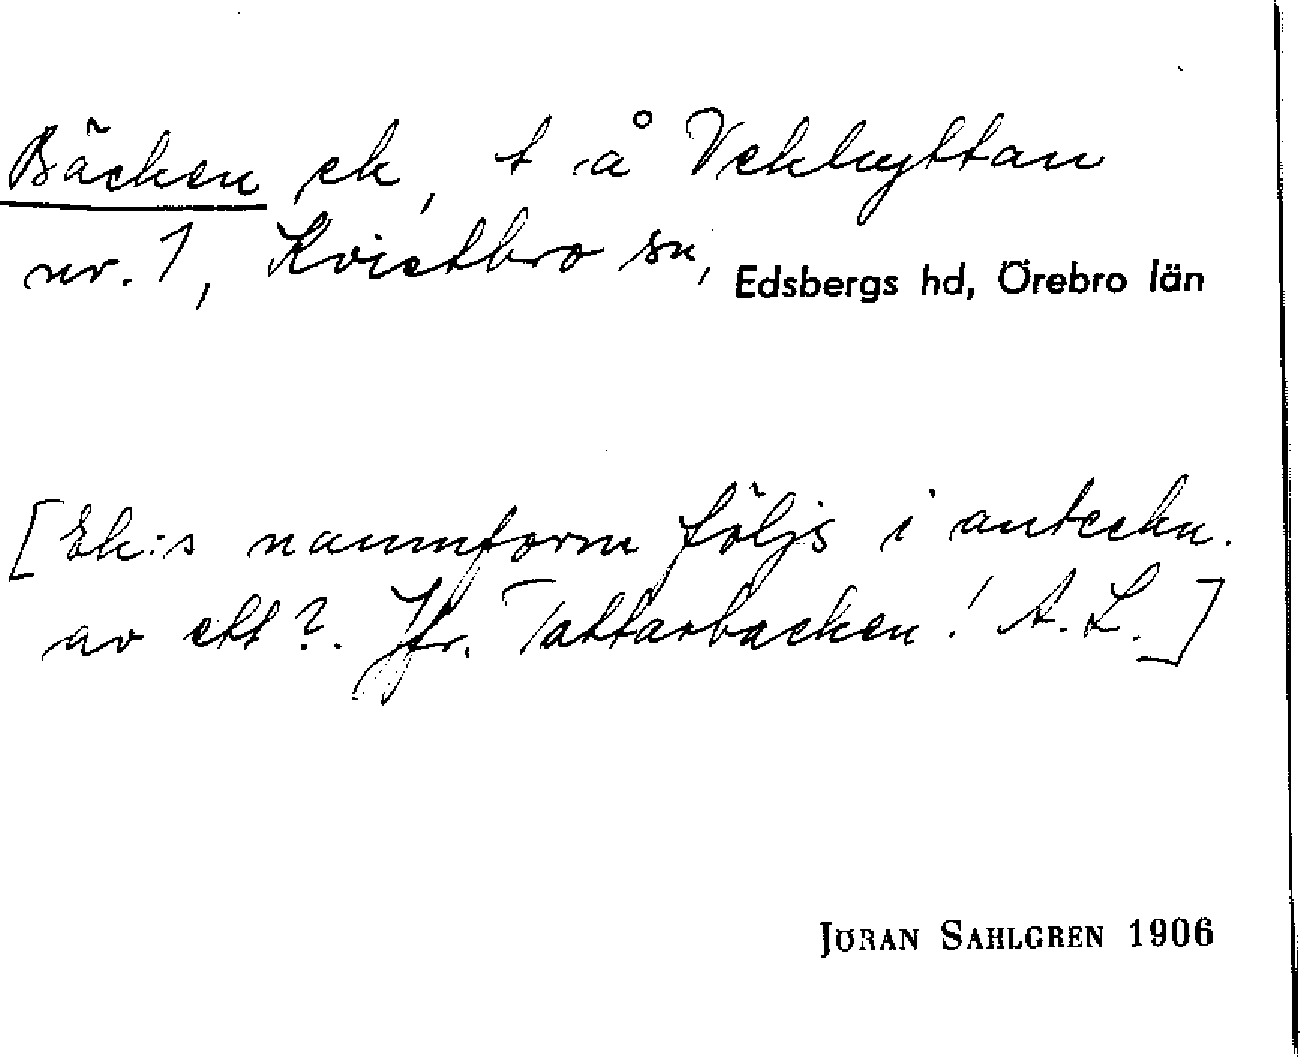 Bäcken ek, t å Vekhyttan
nr. 1, Kvistbro sn, Edsbergs hd, Örebro län
[Ek:s namnform följs i anteckn.
av ett ?. Jfr. Tattarbacken! A. L.]
JÖRAN SAHLGREN 1906